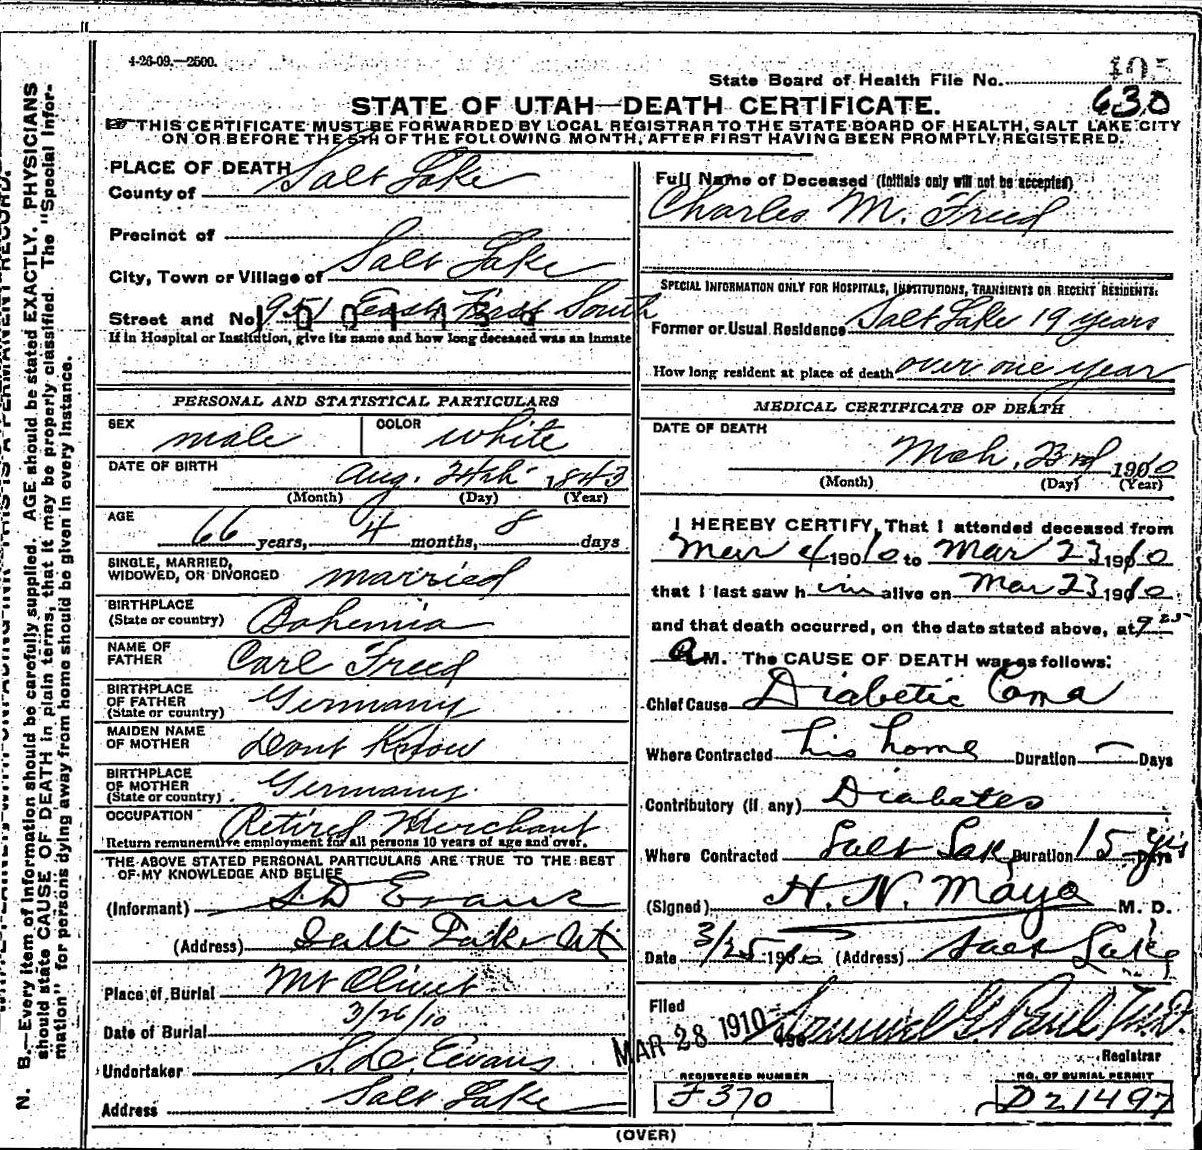 4-26-09.—2500.
State Board of Health File No.
630
STATE OF UTAH—DEATH CERTIFICATE.
THIS CERTIFICATE MUST BE FORWARDED BY LOCAL REGISTRAR TO THE STATE BOARD OF HEALTH, SALT LAKE CITY
ON OR BEFORE THE 5TH OF THE FOLLOWING MONTH, AFTER FIRST HAVING BEEN PROMPTLY REGISTERED.
PLACE OF DEATH
County of Salt Lake
Precinct of
City, Town or Village of Salt Lake
Street and No. 951 East First South
If in Hospital or Institution, give its name and how long deceased was an inmate
PERSONAL AND STATISTICAL PARTICULARS
SEX male COLOR white
DATE OF BIRTH Aug. 24th 1843
(Month) (Day) (Year)
AGE 66 years, 4 months, 8 days
SINGLE, MARRIED,
WIDOWED, OR DIVORCED married
BIRTHPLACE
(State or country) Bohemia
NAME OF
FATHER Carl Freed
BIRTHPLACE
OF FATHER
(State or country) Germany
MAIDEN NAME
OF MOTHER Dont Know
BIRTHPLACE
OF MOTHER
(State or country) Germany
OCCUPATION Retired Merchant
Return remunerative employment for all persons 10 years of age and over.
THE ABOVE STATED PERSONAL PARTICULARS ARE TRUE TO THE BEST
OF MY KNOWLEDGE AND BELIEF
(Informant) S.D. Evans
(Address) Salt Lake Ut
Place of Burial Mt Olivet
Date of Burial 3/26/10
Undertaker S.D. Evans
Address Salt Lake
Full Name of Deceased (Initials only will not be accepted)
Charles M. Freed
SPECIAL INFORMATION ONLY FOR HOSPITALS, INSTITUTIONS, TRANSIENTS OR RECENT RESIDENTS.
Former or Usual Residence Salt Lake 19 years
How long resident at place of death over one year
MEDICAL CERTIFICATE OF DEATH
DATE OF DEATH
Mch. 23rd 1910
(Month) (Day) (Year)
I HEREBY CERTIFY, That I attended deceased from
Mar 4 1910 to Mar 23 1910
that I last saw him alive on Mar 23 1910
and that death occurred, on the date stated above, at 9 25
A M. The CAUSE OF DEATH was as follows:
Chief Cause Diabetic Coma
Where Contracted his home Duration — Days
Contributory (if any) Diabetes
Where Contracted Salt Lake Duration 15 yrs Days
(Signed) H. N. Mayo M. D.
Date 3/25 1910 (Address) Salt Lake
Filed
MAR 28 1910 190 Samuel G. Paul M.D.
Registrar
REGISTERED NUMBER
F 370
NO. OF BURIAL PERMIT
D 21497
(OVER)
N. B.—Every item of information should be carefully supplied. AGE should be stated EXACTLY. PHYSICIANS
should state CAUSE OF DEATH in plain terms, that it may be properly classified. The "Special Infor-
mation" for persons dying away from home should be given in every instance.